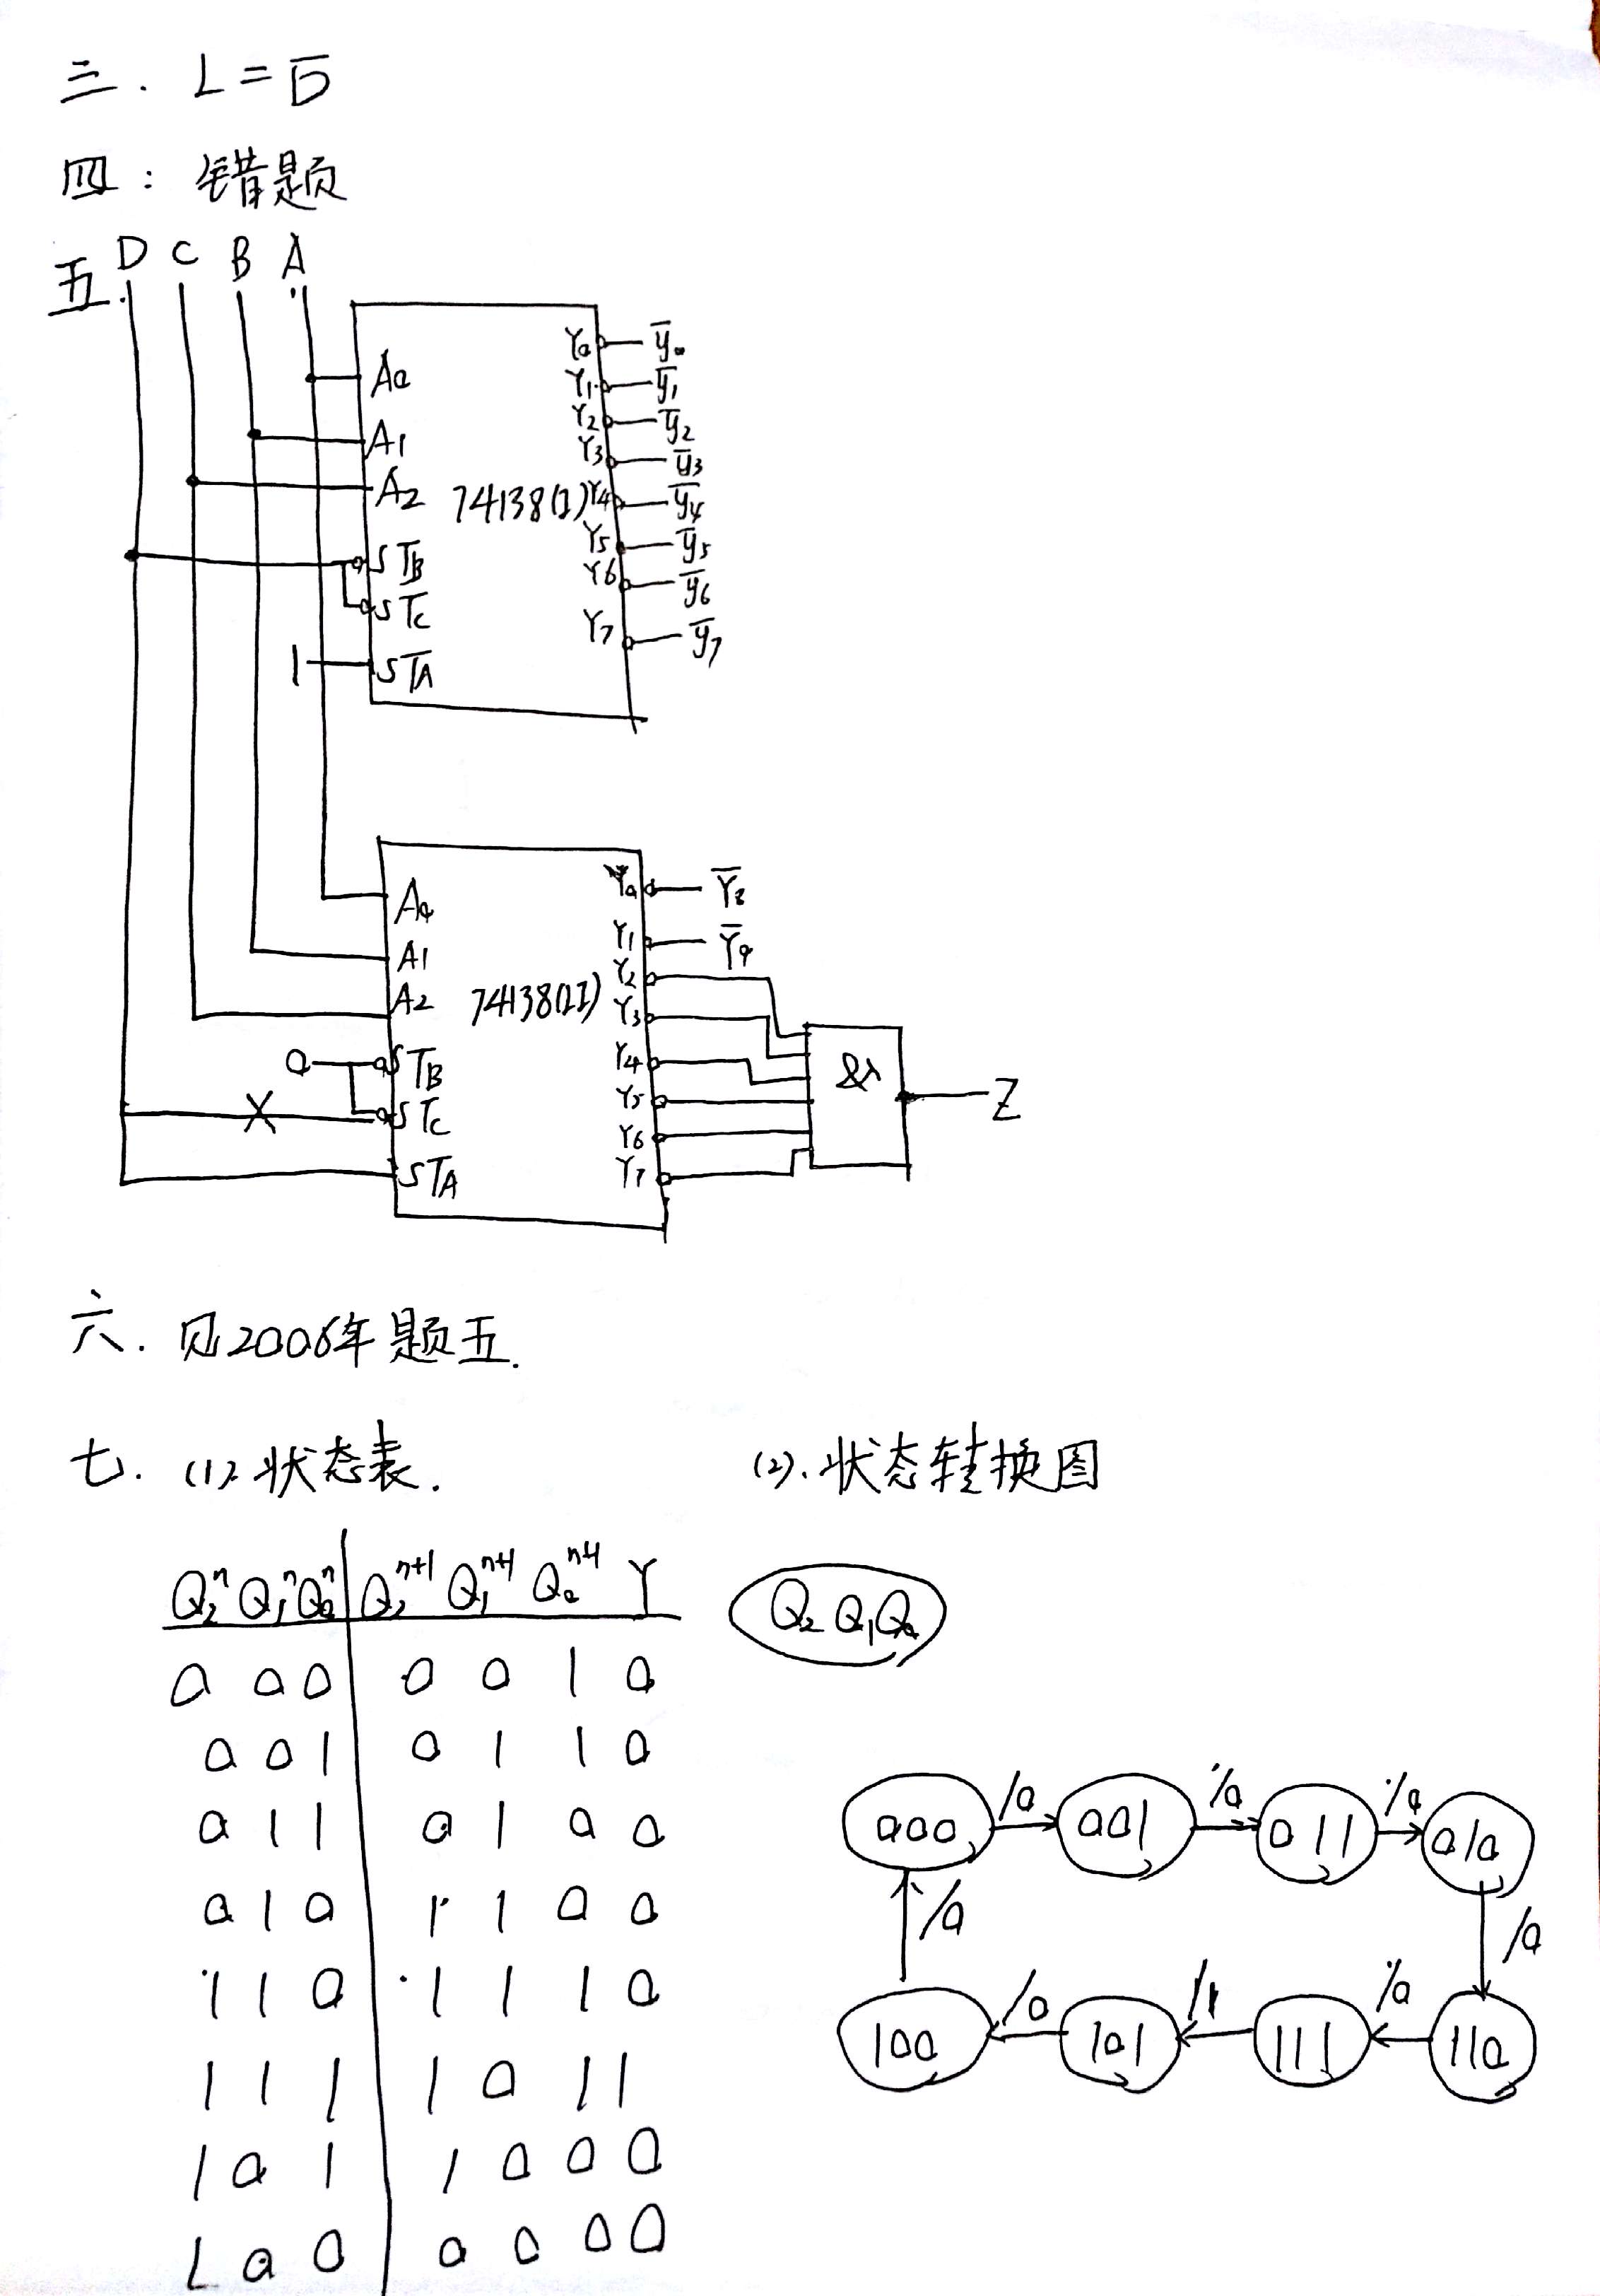 三. L=D̅
四: 错题
五. D C B A
A0
A1
A2
STB
STC
1 STA
74138(I)
Y0 y̅0
Y1 y̅1
Y2 y̅2
Y3 y̅3
Y4 y̅4
Y5 y̅5
Y6 y̅6
Y7 y̅7
A0
A1
A2
0 STB
STC
STA
74138(II)
Y0 Y̅8
Y1 Y̅9
Y2
Y3
Y4
Y5
Y6
Y7
& Z
六. 见2006年题五.
七. (1) 状态表.
Q2^n Q1^n Q0^n Q2^n+1 Q1^n+1 Q0^n+1 Y
0 0 0 0 0 1 0
0 0 1 0 1 1 0
0 1 1 0 1 0 0
0 1 0 1 1 0 0
1 1 0 1 1 1 0
1 1 1 1 0 1 1
1 0 1 1 0 0 0
1 0 0 0 0 0 0
(2). 状态转换图
Q2 Q1 Q0
000 /0 001 /0 011 /0 010
/0 /0
100 /0 101 /1 111 /0 110